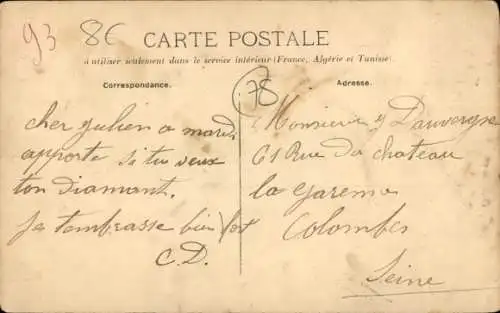 93 8E
CARTE POSTALE
à utiliser seulement dans le service intérieur (France, Algérie et Tunisie)
Correspondance.
Adresse.
78
cher Julien a mardi
apporte si tu veux
ton Diamant.
Je t'embrasse bien fort
C.D.
Monsieur J Dauvergne
61 Rue du chateau
la garenne
Colombes
Seine